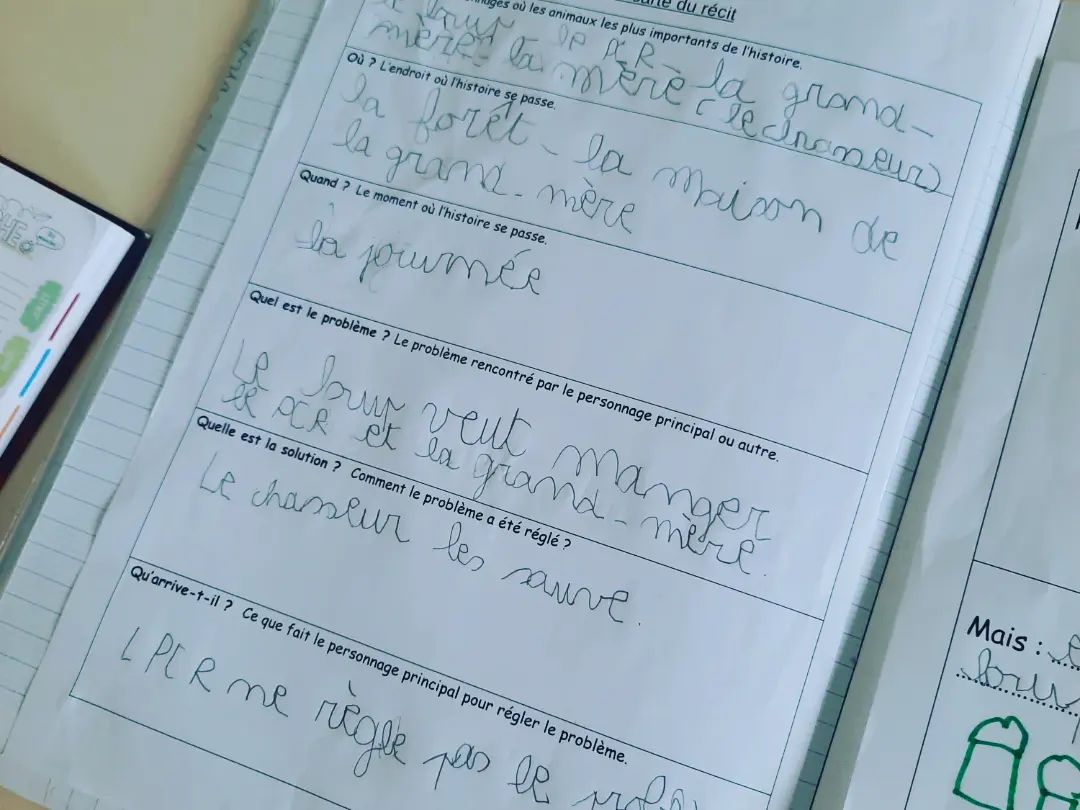 du récit
où les animaux les plus importants de l'histoire.
loup le PCR - la grand-
mère - la mère (le chasseur)
Où ? L'endroit où l'histoire se passe.
la forêt - la maison de
la grand-mère
Quand ? Le moment où l'histoire se passe.
la journée
Quel est le problème ? Le problème rencontré par le personnage principal ou autre.
Le loup veut manger
le PCR et la grand-mère.
Quelle est la solution ? Comment le problème a été réglé ?
Le chasseur les sauve.
Qu'arrive-t-il ? Ce que fait le personnage principal pour régler le problème.
LPCR ne règle pas le
Mais :